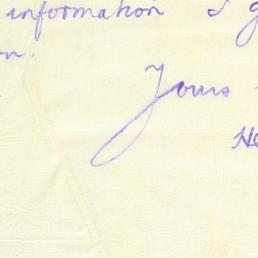 information I g
n.
Yours
He